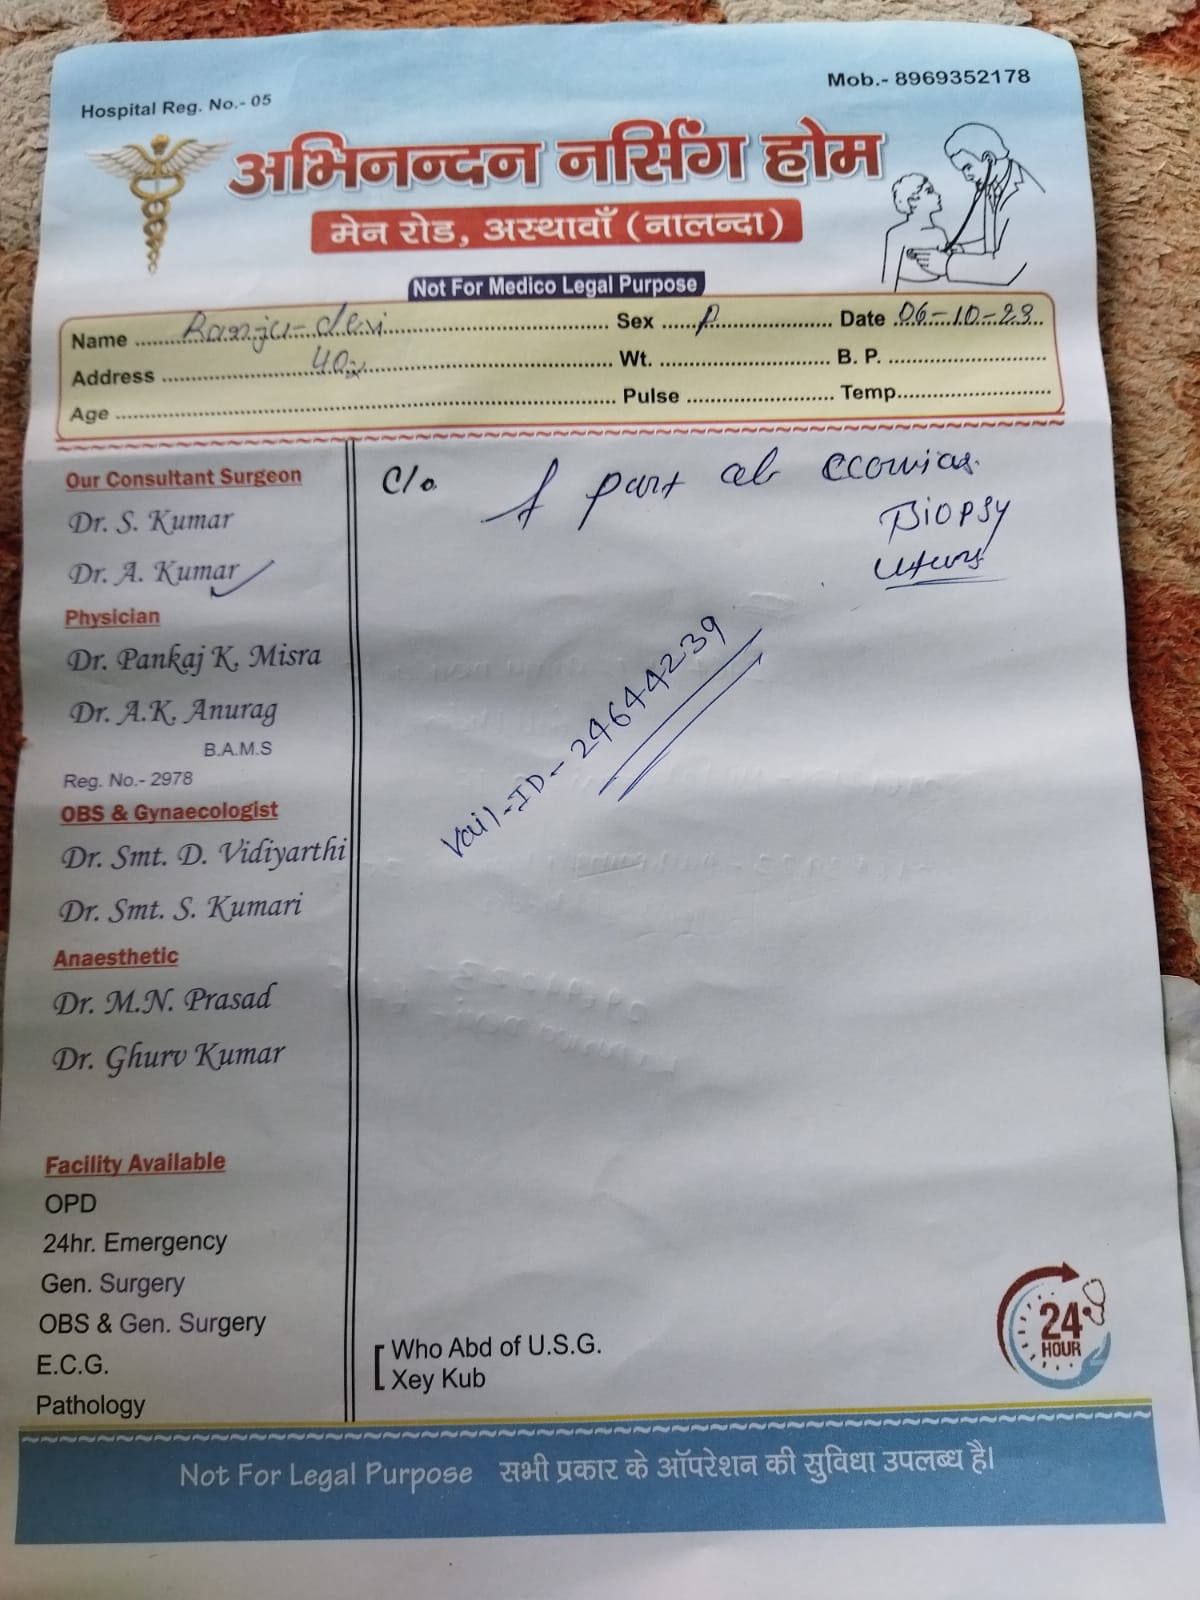 Hospital Reg. No.- 05
Mob.- 8969352178
अभिनन्दन नर्सिंग होम
मेन रोड, अस्थावाँ (नालन्दा)
Not For Medico Legal Purpose
Name Ranju-devi Sex Date 06-10-23
Address 40 Wt. B. P.
Age Pulse Temp.
Our Consultant Surgeon
Dr. S. Kumar
Dr. A. Kumar
Physician
Dr. Pankaj K. Misra
Dr. A.K. Anurag
B.A.M.S
Reg. No.- 2978
OBS & Gynaecologist
Dr. Smt. D. Vidiyarthi
Dr. Smt. S. Kumari
Anaesthetic
Dr. M.N. Prasad
Dr. Ghurv Kumar
Facility Available
OPD
24hr. Emergency
Gen. Surgery
OBS & Gen. Surgery
E.C.G.
Pathology
C/o part
Biopsy
Vail-ID- 24644239
Who Abd of U.S.G.
Xey Kub
24
HOUR
Not For Legal Purpose सभी प्रकार के ऑपरेशन की सुविधा उपलब्ध है।